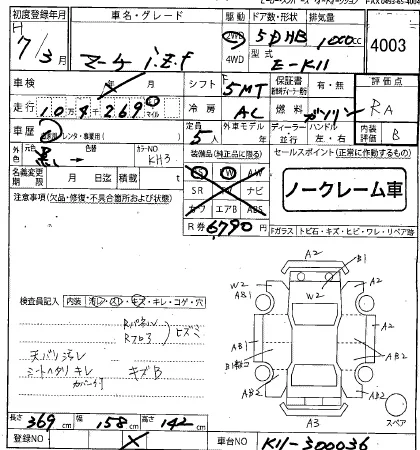 初度登録年月 車名・グレード 駆動 ドア数・形状 排気量
H 7/3月 マーチ i.z.f 2WD 4WD 5DHB 1000cc 4003
型式 E-K11
車検 年 月 シフト F5MT 保証書 有・無 評価点
走行 10万4千269 マイル 冷房 AC 燃料 ガソリン RA
車歴 自家用 レンタ・事業用( ) 定員 5人 外車モデル 年 ディーラー 並行 ハンドル 左・右 内装評価 B
外色 元色 黒 色替 カラーNO KH3
装備品(純正品に限る) セールスポイント(正常に作動するもの)
名義変更期限 月 日迄 積載 t
PS PW AW
SR ナビ
カワ エアB ABS
R券 6790円
ノークレーム車
注意事項(欠品・修復・不具合箇所および状態)
Fガラス トビ石・キズ・ヒビ・ワレ・リペア跡
検査員記入 内装 汚レ・スレ・キズ・キレ・コゲ・穴
Rパネル
Rフロア
ヒズミ
天バリ汚レ
シートヘタリ キレ
カバー付
キズB
A2
B1
W2
AB1
W2
A2
AB1
A2
AB2
AB2
A3
スペア
長さ 369cm 幅 158cm 高さ 142cm
登録NO 車台NO K11-300036